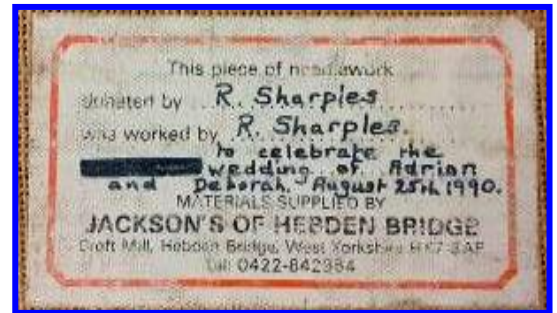 This piece of needlework
donated by R. Sharples
was worked by R. Sharples.
to celebrate the
wedding of Adrian
and Deborah. August 25th 1990.
MATERIALS SUPPLIED BY
JACKSON'S OF HEBDEN BRIDGE
Croft Mill, Hebden Bridge, West Yorkshire HX7 8AP
Tel: 0422-842964